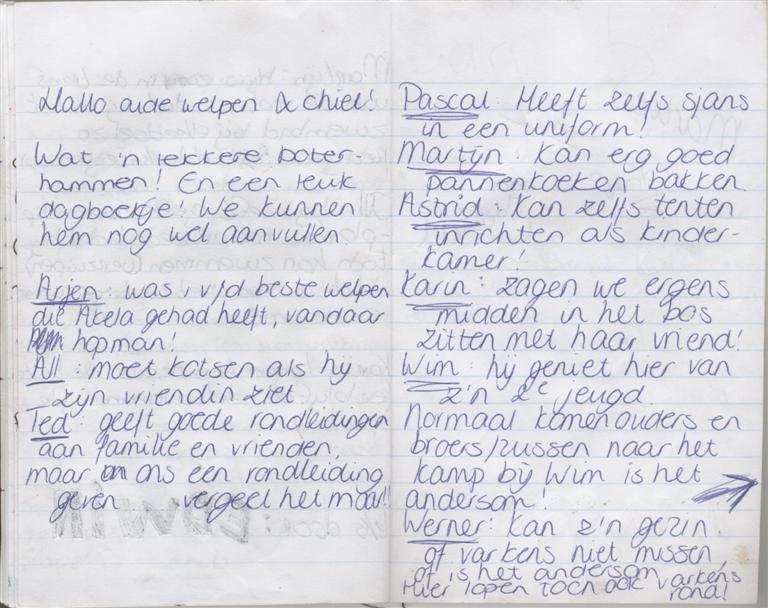 Hallo oude welpen & chiel!
Wat 'n lekkere boter-
hammen! En een leuk
dagboekje! We kunnen
hem nog wel aanvullen
Arjen: was 1 v/d beste welpen
die Akela gehad heeft, vandaar
hopman!
All: moet kotsen als hij
zijn vriendin ziet
Ted: geeft goede rondleidingen
aan familie en vrienden,
maar ons een rondleiding
geven vergeet het maar!!
Pascal: Heeft zelfs sjans
in een uniform!
Martijn: Kan erg goed
pannenkoeken bakken
Astrid: Kan zelfs tenten
inrichten als kinder-
kamer!
Karin: zagen we ergens
midden in het bos
zitten met haar vriend!
Wim: hij geniet hier van
z'n 2e jeugd.
Normaal komen ouders en
broers/zussen naar het
kamp bij Wim is het
andersom!
Werner: Kan z'n gezin
of varkens niet missen,
of is het andersom
Hier lopen toch ook varkens
rond!